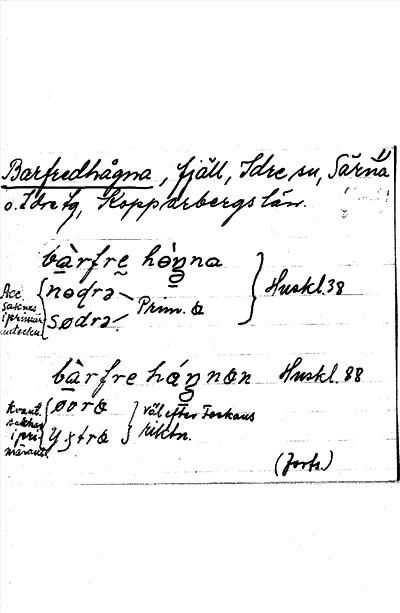 Barfredhågna, fjäll, Idre sn, Särna
o. Idre tg, Kopparbergs län.
bàrfre hǫ́gna
Acc. saknas i primäruppteckn.
nǝdrǝ
sødrǝ
Prim. a
Huskl. 38
bàrfre hágnan Huskl. 88
kvant. saknas i primäruppt.
øvra
ystra
väl efter Forkaus
riktn.
(forts.)